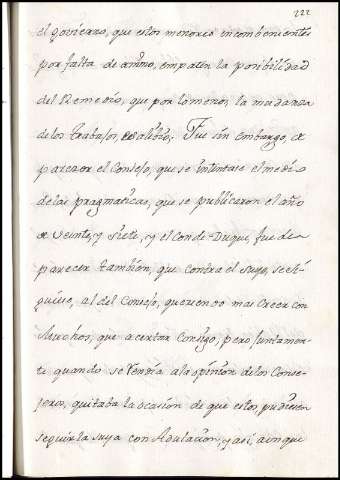 222
el govierno, que estos menores incombenientes
por falta de animo, empaten la posibilidad
del Remedio, que por lo menos, la mudanza
de los trabajos, es alibio; Fue sin embargo, de
parezer el Consejo, que se intentase el medio
de las pragmaticas, que se publicaron el año
de Veinte, y siete, y el Conde-Duque, fue de
parecer tambien, que contra el suyo, se si-
guiese, al del Consejo, queriendo mas Creer con
Muchos, que acertar Consigo, pero juntamen-
te quando se Vendia a la opinion de los Conse-
jeros, quitaba la ocasion de que estos, pudiesen
seguir la suya con Adulacion, y asi, aunque